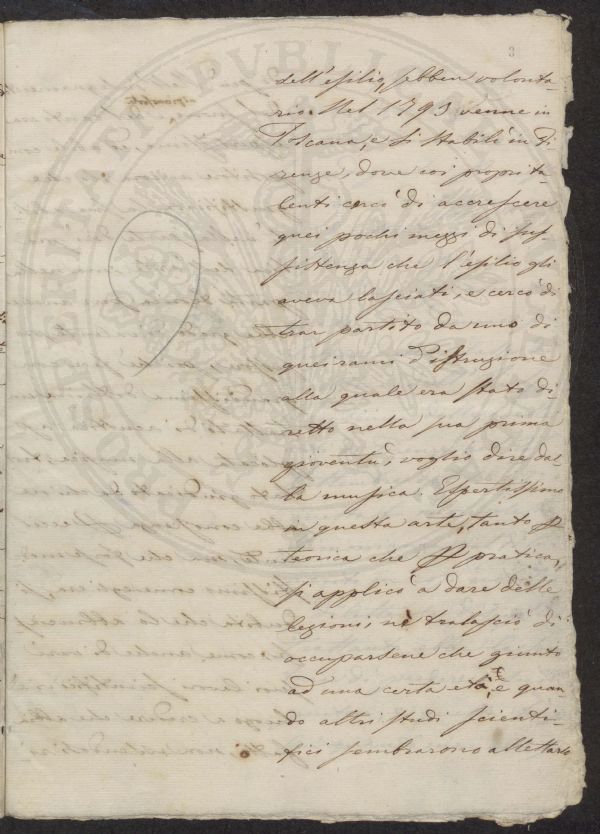 3
dell'esilio, sebben volonta-
rio. Nel 1793 venne in
Toscana, e si stabilì in Fi-
renze, dove coi proprj ta-
lenti cercò di accrescere
quei pochi mezzi di sus-
sistenza che l'esilio gli
aveva lasciati, e cercò di
trar partito da uno di
quei rami d'istruzione
alla quale era stato di-
retto nella sua prima
gioventù, voglio dire dal-
la musica. Espertissimo
in questa arte, tanto p
teorica che p pratica,
si applicò a dare delle
lezioni, nè tralasciò di
occuparsene che giunto
ad una certa età, e quan-
do altri studi scienti-
fici sembrarono allettarlo